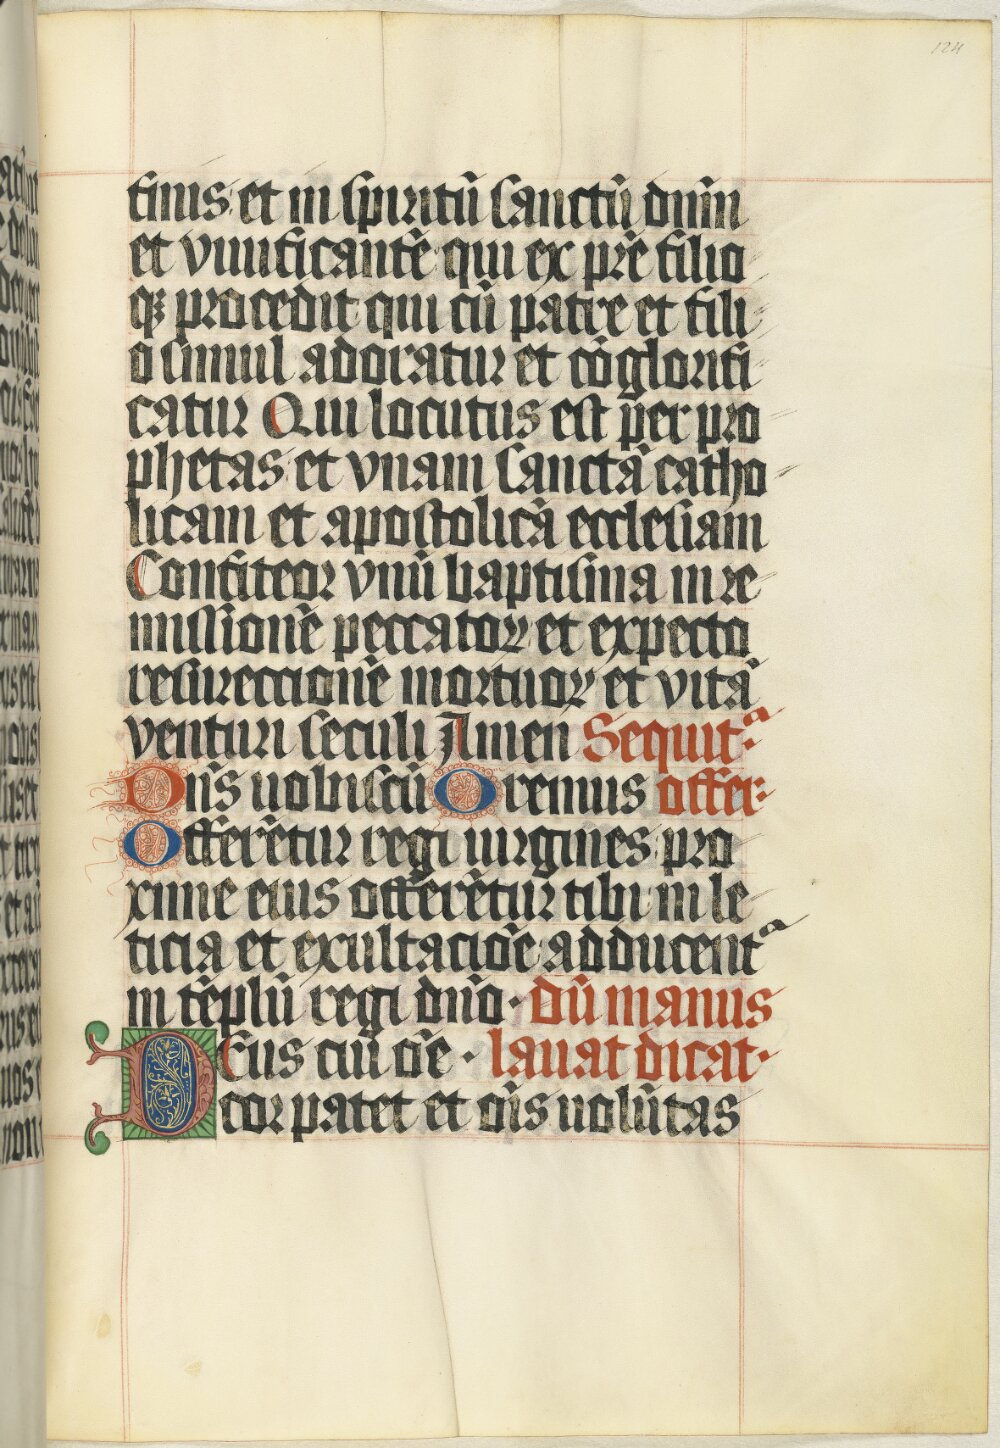 124
finis et in spiritū sanctū dnm̄
et viuificantē qui ex pr̄e filio
qȝ procedit qui cū patre et fili
o simul adoratur et cōglorifi
catur Qui locutus est per pro
phetas et vnam sanctā catho
licam et apostolicā ecclesiam
Confiteor vnū baptisma in re
missionē peccatoꝝ et expecto
resurectionē mortuoꝝ et vitā
venturi seculi Amen Sequitᵃ
Dn̄s uobiscū Oremus offer
Offerētur regi uirgines pro
xime eius offerētur tibi in le
ticia et exultaciōe adducentᵃ
in tēplū regi dn̄o · Dū manus
Deus cui ōe · lauat dicat ·
cor patet et ōīs uolūtas